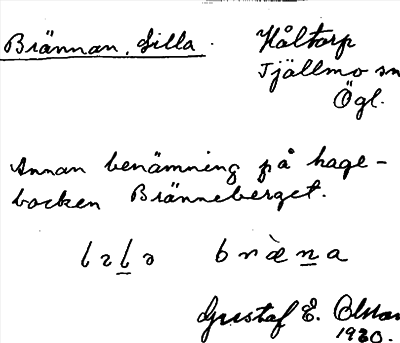 Brännan, Lilla. Håltorp
Tjällmo sn.
Ögl.
Annan benämning på hage-
backen Bränneberget.
bræ̀na
Gustaf E. Olsson
1930.